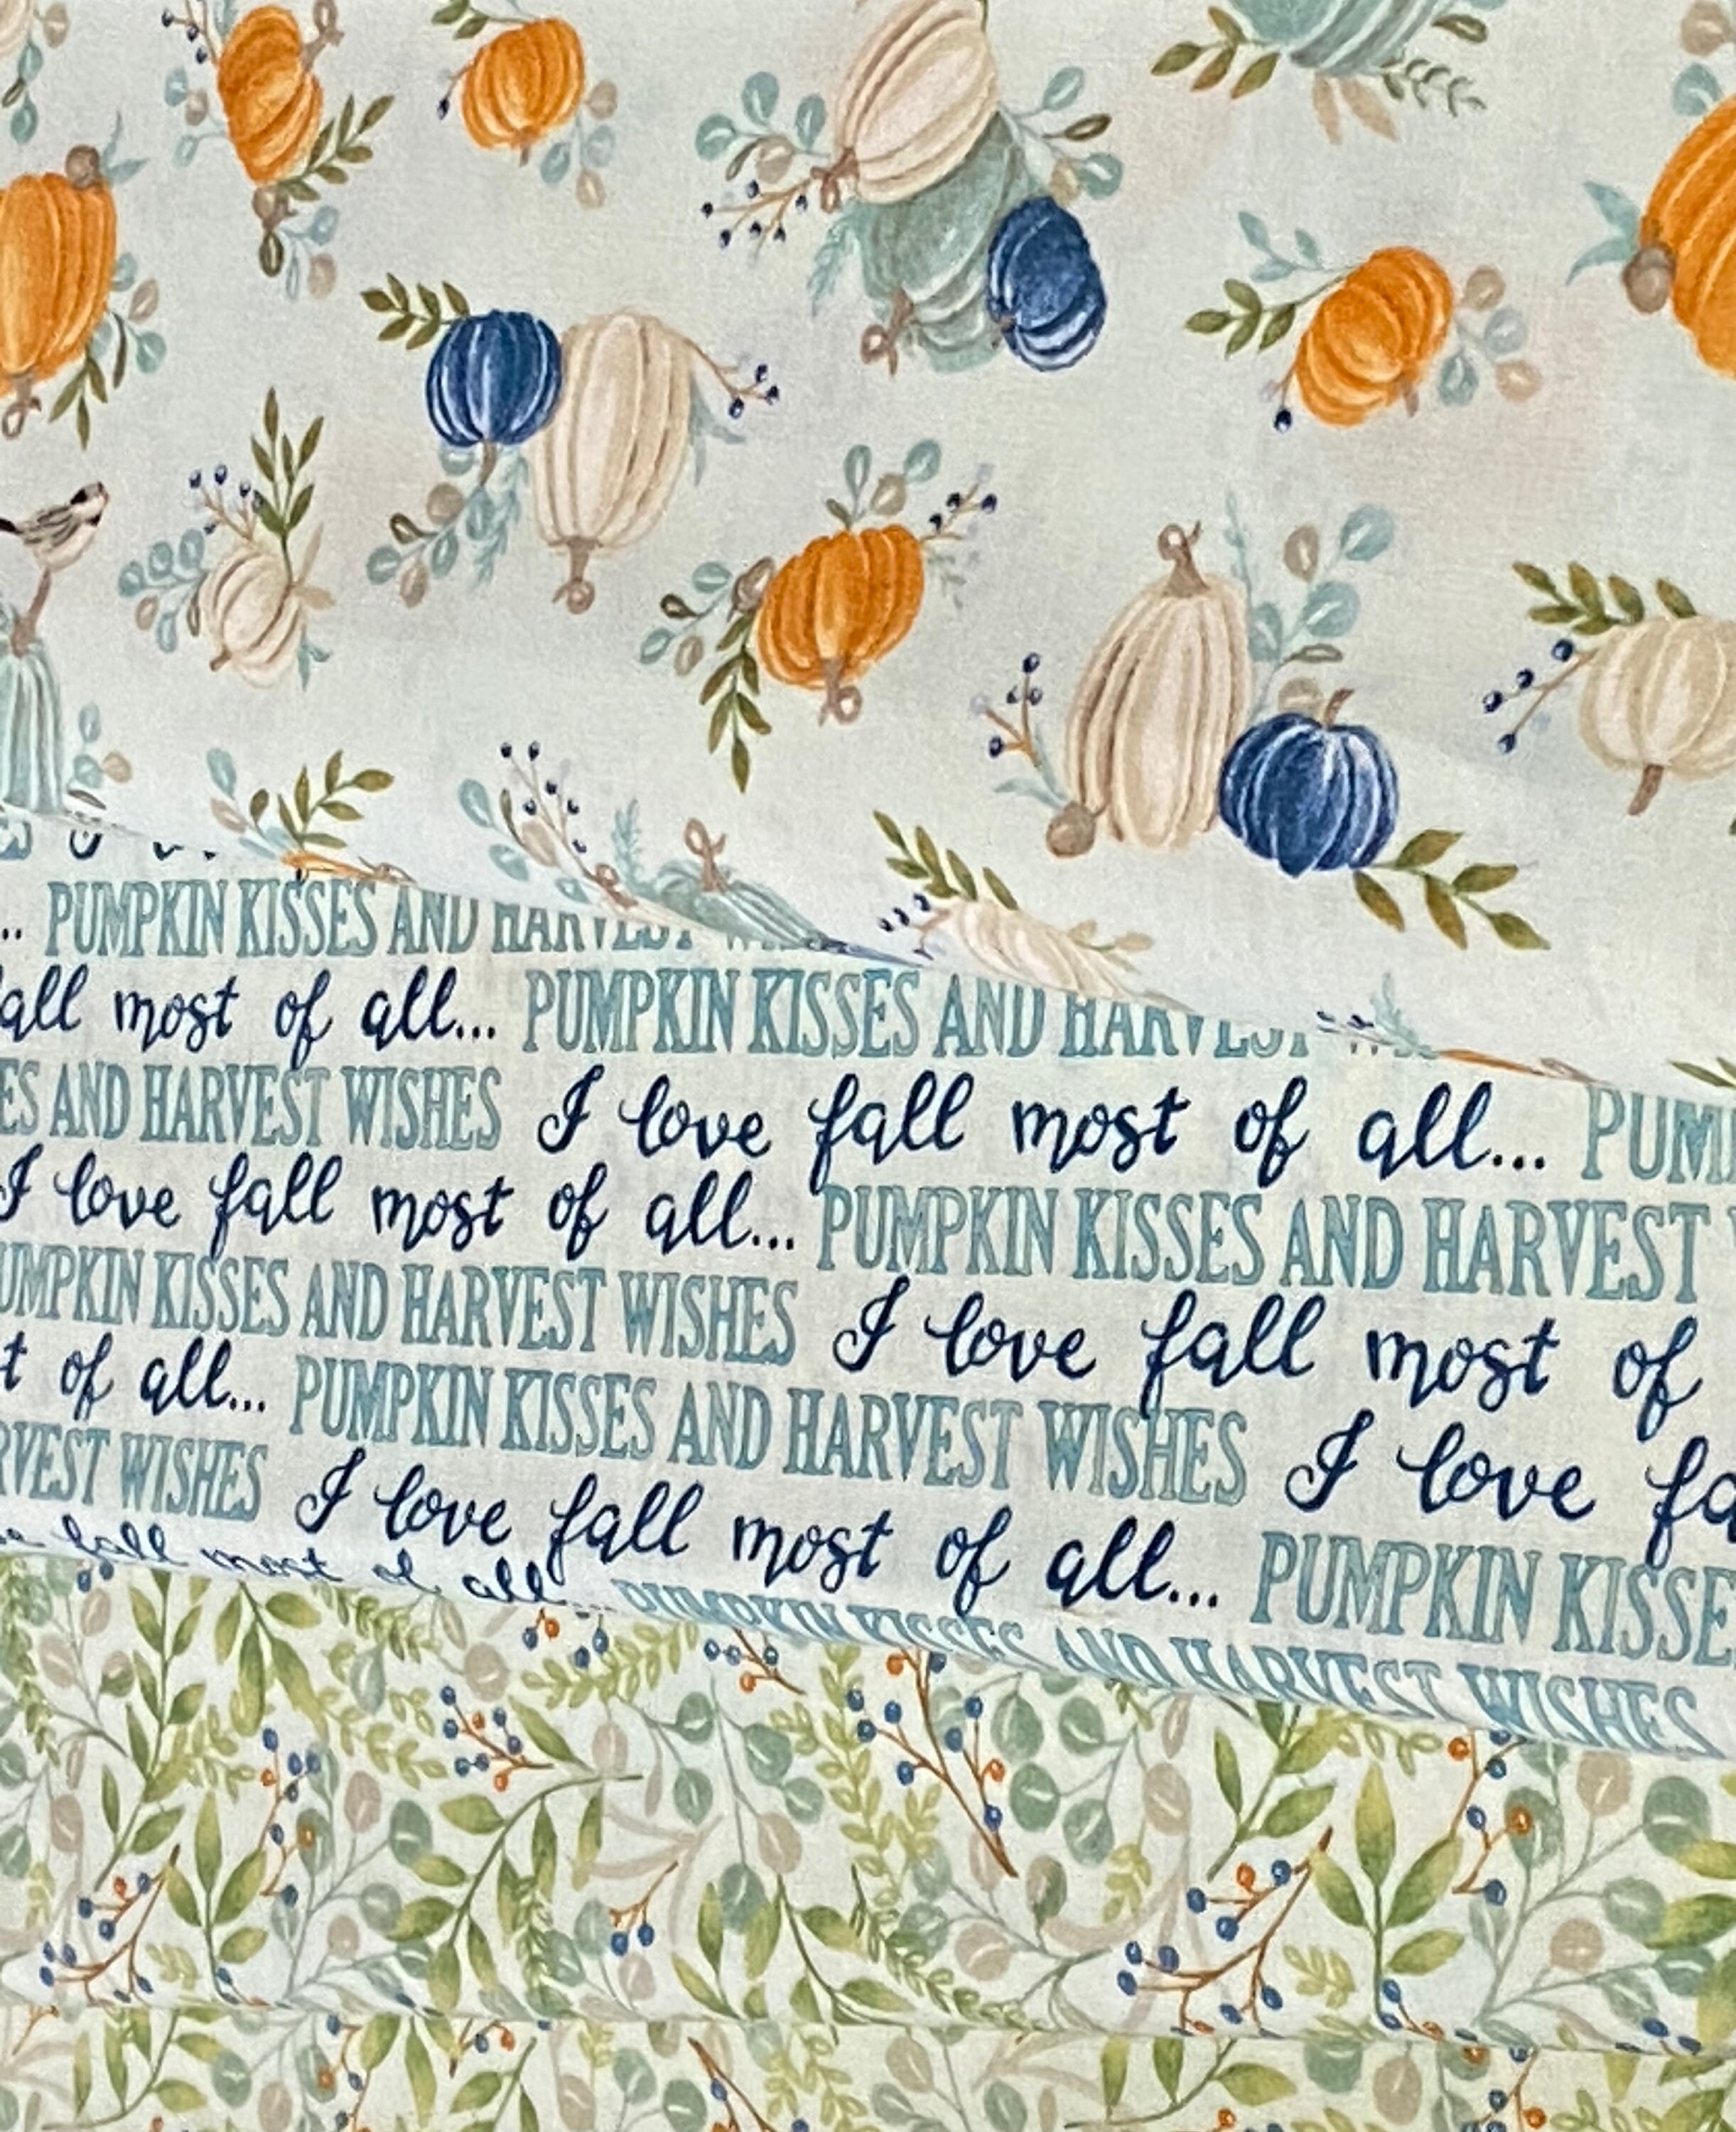 ... PUMPKIN KISSES AND HARVEST
fall most of all... PUMPKIN KISSES AND HARVEST
ES AND HARVEST WISHES I love fall most of all... PUM
I love fall most of all... PUMPKIN KISSES AND HARVEST
UMPKIN KISSES AND HARVEST WISHES I love fall most of
t of all... PUMPKIN KISSES AND HARVEST WISHES I love fa
RVEST WISHES I love fall most of all... PUMPKIN KISSE
fall most of all... PUMPKIN KISSES AND HARVEST WISHES